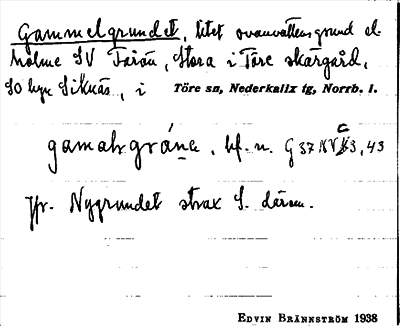 Gammelgrundet, litet ovanvattensgrund el.
holme SV Farön, Stora i Töre skärgård,
SO byn Siknäs, i Töre sn, Nederkalix tg, Norrb. l.
bf. n. G 37
Jfr. Nygrundet strax S. därom.
EDVIN BRÄNNSTRÖM 1938